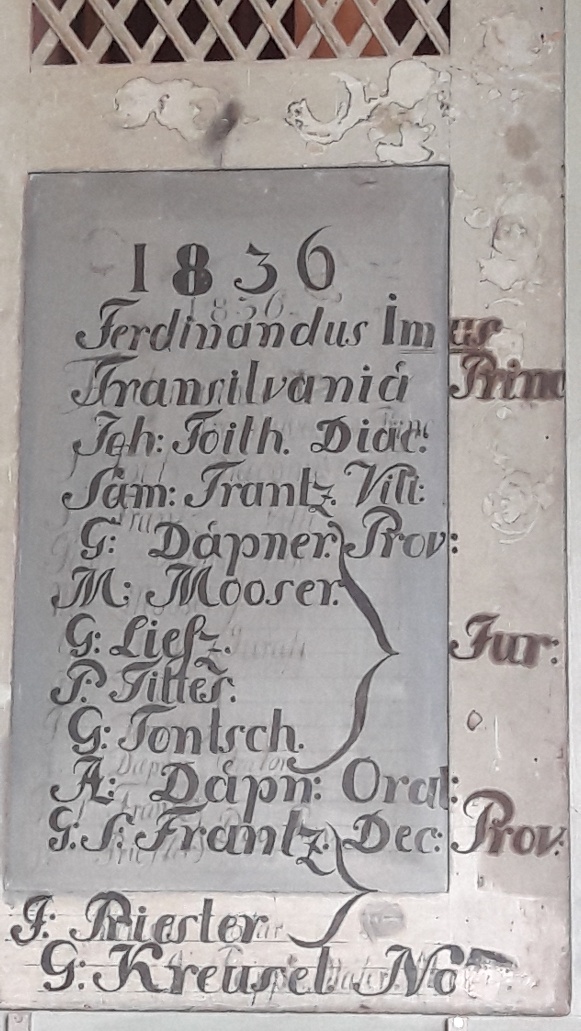 1836
Ferdinandus Imus
Transilvaniá Princ
Joh: Foith. Diac:
Sám: Frantz Vill:
G: Däpner. Prov:
M: Mooser.
G: Liess. Jur:
P. Tittes.
G: Tontsch.
A: Däpn: Orat:
G: S. Frantz Dec: Prov:
J: Priester
G: Kreusel. No